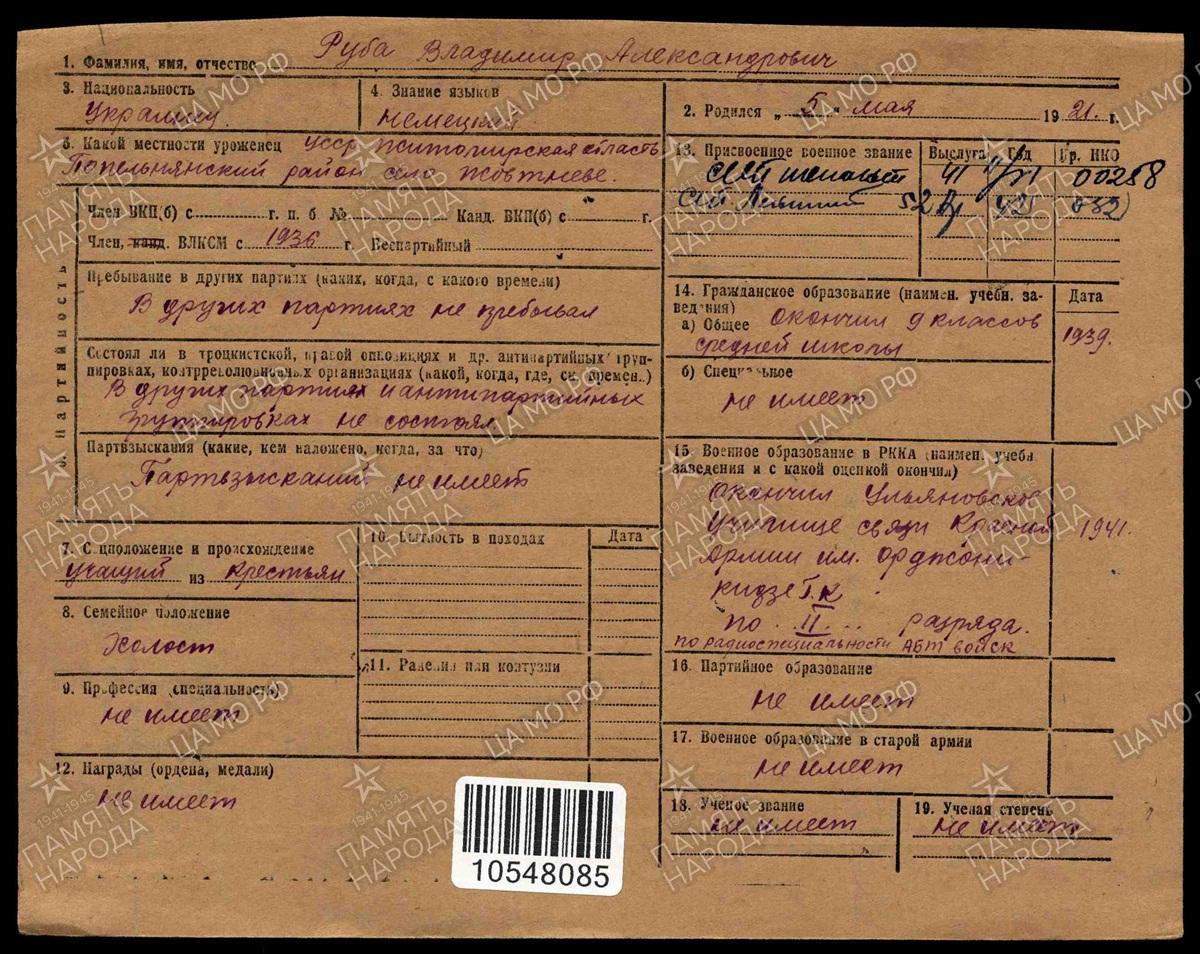 Руба Владимир Александрович
1. Фамилия, имя, отчество
3. Национальность
украинец
4. Знание языков
немецкий
2. Родился „ 5 “ мая 1921. г.
5. Какой местности уроженец УССР Житомирская область
Попельнянский район село Жовтневе.
6. Партийность
Член ВКП(б) с г. п. б № Канд. ВКП(б) с г.
Член, канд. ВЛКСМ с 1936 г. Беспартийный
Пребывание в других партиях (каких, когда, с какого времени)
В других партиях не пребывал
Состоял ли в троцкистской, правой оппозициях и др. антипартийных груп-
пировках, контрреволюционных организациях (какой, когда, где, ск. времен.)
В других партиях и антипартийных
группировках не состоял
Партвзыскания (какие, кем наложено, когда, за что)
Партвзысканий не имеет
7. Соцположение и происхождение
учащий из крестьян
8. Семейное положение
Холост
9. Профессия (специальность)
не имеет
10. Бытность в походах
Дата
11. Ранения или контузии
12. Награды (ордена, медали)
не имеет
13. Присвоенное военное звание
Выслуга Год Пр. НКО
41 00258
52 42 032
14. Гражданское образование (наимен. учебн. за-
ведения)
Дата
а) Общее окончил 9 классов
средней школы
1939.
б) Специальное
не имеет
15. Военное образование в РККА (наимен. учебн
заведения и с какой оценкой окончил)
Окончил Ульяновское
училище связи Красной
1941.
Армии им. Орджони-
кидзе Г.К
по II разряда.
по радиоспециальности АБТ войск
16. Партийное образование
не имеет
17. Военное образование в старой армии
не имеет
18. Ученое звание
не имеет
19. Ученая степень
не имеет
10548085
ПАМЯТЬ НАРОДА
1941-1945
ЦА МО РФ